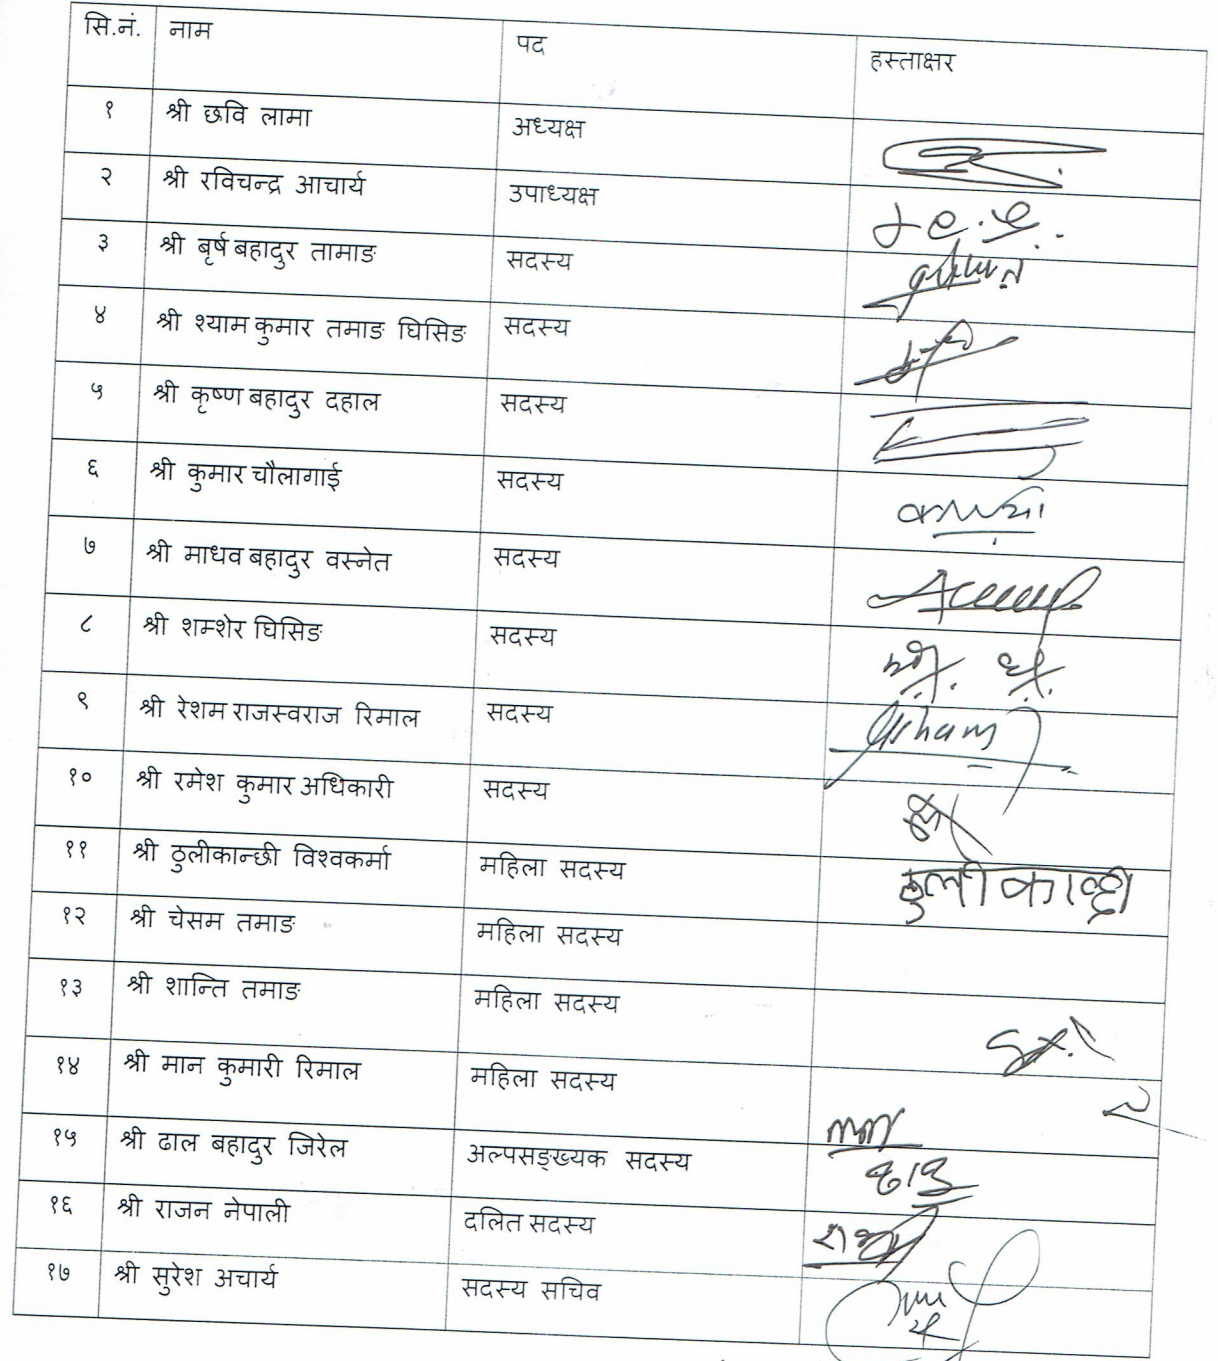 सि.नं. नाम पद हस्ताक्षर
१ श्री छवि लामा अध्यक्ष
२ श्री रविचन्द्र आचार्य उपाध्यक्ष
३ श्री बृर्ष बहादुर तामाङ सदस्य
४ श्री श्याम कुमार तमाङ घिसिङ सदस्य
५ श्री कृष्ण बहादुर दहाल सदस्य
६ श्री कुमार चौलागाई सदस्य
७ श्री माधव बहादुर वस्नेत सदस्य
८ श्री शम्शेर घिसिङ सदस्य
९ श्री रेशम राजस्वराज रिमाल सदस्य
१० श्री रमेश कुमार अधिकारी सदस्य
११ श्री ठुलीकान्छी विश्वकर्मा महिला सदस्य ठुली कान्छी
१२ श्री चेसम तमाङ महिला सदस्य
१३ श्री शान्ति तमाङ महिला सदस्य
१४ श्री मान कुमारी रिमाल महिला सदस्य
१५ श्री ढाल बहादुर जिरेल अल्पसङ्ख्यक सदस्य
१६ श्री राजन नेपाली दलित सदस्य
१७ श्री सुरेश अचार्य सदस्य सचिव